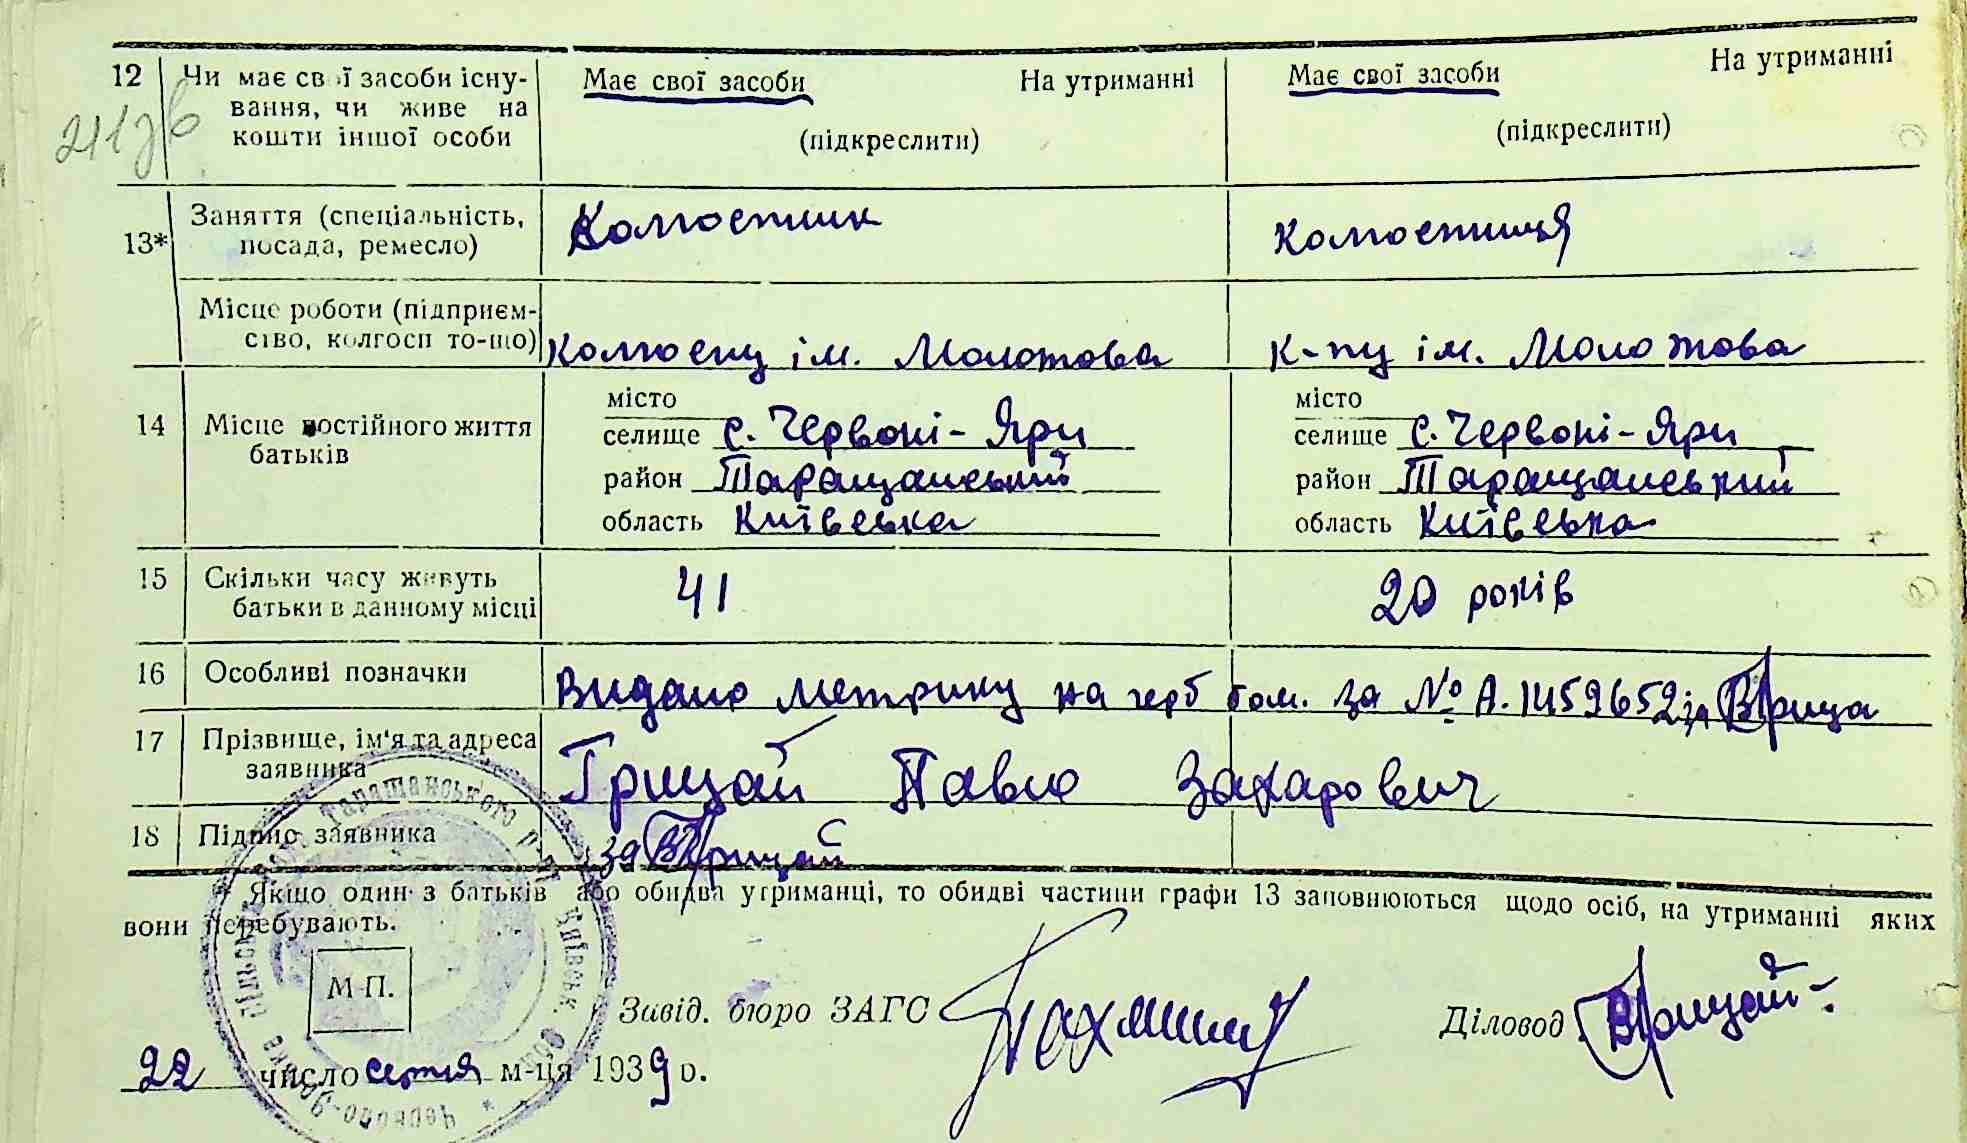 12 Чи має свої засоби існу- Має свої засоби На утриманні Має свої засоби На утриманні
вання, чи живе на
кошти іншої особи (підкреслити) (підкреслити)
13* Заняття (спеціальність, Колгоспник колгоспниця
посада, ремесло)
Місце роботи (підприєм-
ство, колгосп то-що) Колгоспу ім. Молотова К-пу ім. Молотова
місто місто
14 Місце постійного життя селище с. Червоні-Яри селище с. Червоні-Яри
батьків район Таращанський район Таращанський
область Київська область Київська
15 Скільки часу живуть 41 20 років
батьки в данному місці
16 Особливі позначки Видано метрику на герб бом. за № А.1459652
17 Прізвище, ім'я та адреса Грицай Павло Захарович
заявника
18 Підпис заявника за ВГрицай
* Якщо один з батьків або обидва утриманці, то обидві частини графи 13 заповнюються щодо осіб, на утриманні яких
вони перебувають.
М.П.
Завід. бюро ЗАГС Діловод ВГрицай
22 число серпня м-ця 1939 р.
Таращанського р-ну Київськ. Обл.